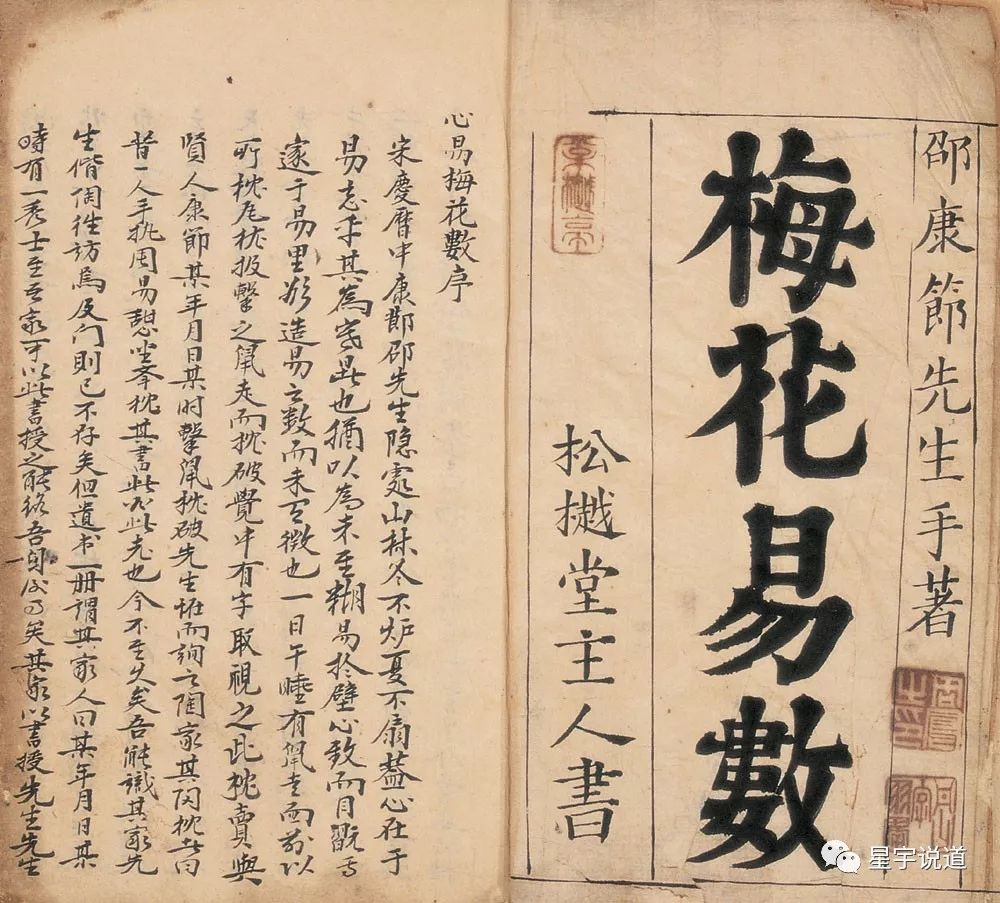 邵康節先生手著
梅花易數
松樾堂主人書
心易梅花數序
宋慶曆中康節邵先生隐處山林冬不炉夏不扇葢心在于
易忘乎其為寒暑也猶以為未至糊易於壁心致而目翫焉
邃于易里欲造易之數而未有徵也一日午睡有鼠走而前以
所枕瓦枕投擊之鼠走而枕破覺中有字取視之此枕賣與
賢人康節某年月日某时擊鼠枕破先生怪而詢之陶家其陶枕者曰
昔一人手执周易憩坐奉枕其書此必此老也今不至久矣吾能識其家先
生偕陶往訪焉及门則已不存矣但遺书一册謂其家人曰某年月日某
時有一秀士至吾家可以此書授之能終吾身后事矣其家以書授先生先生
星宇说道